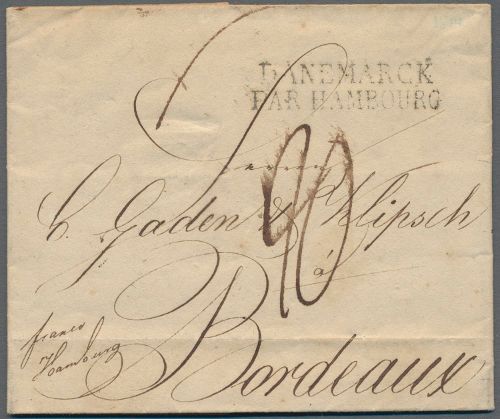 DANEMARCK
PAR HAMBOURG
C. Gaden & Klipsch
à
Bordeaux
franco
Hambourg